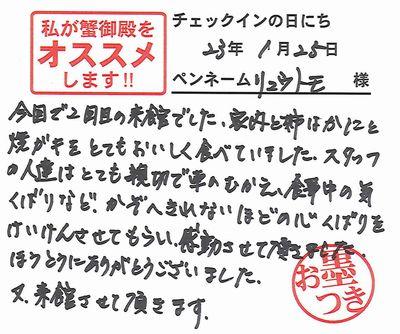 私が蟹御殿を
オススメ
します!!
チェックインの日にち
23年 1月25日
ペンネーム リュウトモ 様
今日で2回目の来館でした。家内と姉はかにと
焼がキをとてもおいしく食べていました。スタッフ
の人達はとても親切で車のむかえ、食事中の気
くばりなど、かぞへきれないほどの心くばりを
けいけんさせてもらい、感動させて頂きました。
ほうとうにありがとうございました。
又、来館させて頂きます。
お墨つき